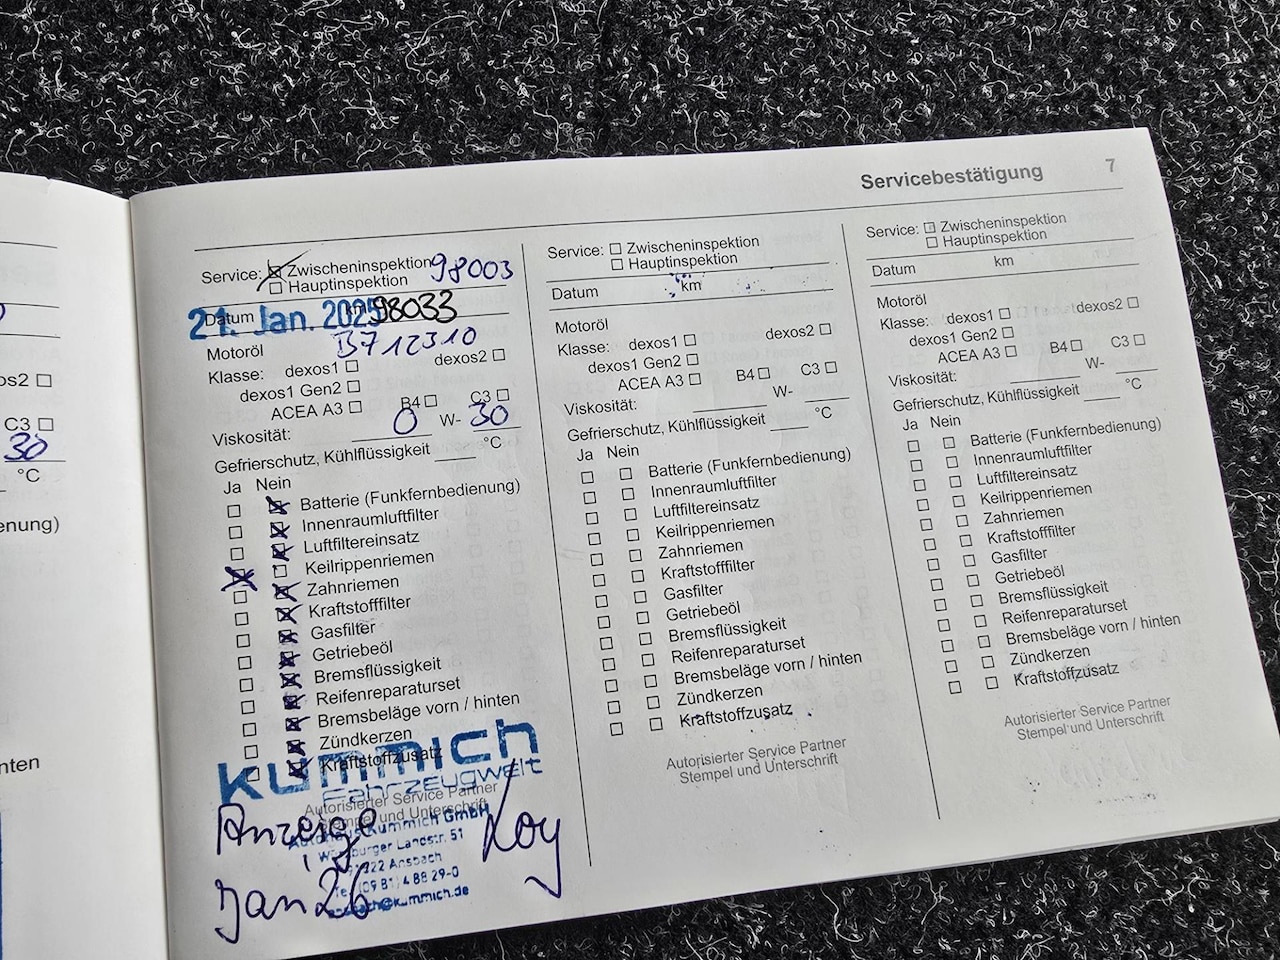 Servicebestätigung 7
os2
C3
30
°C
enung)
nten
Service: Zwischeninspektion 98003
Hauptinspektion
Datum 21. Jan. 2025 km 98033
Motoröl B712310
Klasse: dexos1 dexos2
dexos1 Gen2
ACEA A3 B4 C3
Viskosität: 0 W- 30
Gefrierschutz, Kühlflüssigkeit °C
Ja Nein
Batterie (Funkfernbedienung)
Innenraumluftfilter
Luftfiltereinsatz
Keilrippenriemen
Zahnriemen
Kraftstofffilter
Gasfilter
Getriebeöl
Bremsflüssigkeit
Reifenreparaturset
Bremsbeläge vorn / hinten
Zündkerzen
Kraftstoffzusatz
kummich
Fahrzeugwelt
Autorisierter Service Partner
Stempel und Unterschrift
Anzeige
Autohaus Kummich GmbH
Würzburger Landstr. 51
Ansbach
Tel. (09 81) 4 88 29-0
Jan 26
Service: Zwischeninspektion
Hauptinspektion
Datum km
Motoröl
Klasse: dexos1 dexos2
dexos1 Gen2
ACEA A3 B4 C3
Viskosität: W-
Gefrierschutz, Kühlflüssigkeit °C
Ja Nein
Batterie (Funkfernbedienung)
Innenraumluftfilter
Luftfiltereinsatz
Keilrippenriemen
Zahnriemen
Kraftstofffilter
Gasfilter
Getriebeöl
Bremsflüssigkeit
Reifenreparaturset
Bremsbeläge vorn / hinten
Zündkerzen
Kraftstoffzusatz
Autorisierter Service Partner
Stempel und Unterschrift
Service: Zwischeninspektion
Hauptinspektion
Datum km
Motoröl
Klasse: dexos1 dexos2
dexos1 Gen2
ACEA A3 B4 C3
Viskosität: W-
Gefrierschutz, Kühlflüssigkeit °C
Ja Nein
Batterie (Funkfernbedienung)
Innenraumluftfilter
Luftfiltereinsatz
Keilrippenriemen
Zahnriemen
Kraftstofffilter
Gasfilter
Getriebeöl
Bremsflüssigkeit
Reifenreparaturset
Bremsbeläge vorn / hinten
Zündkerzen
Kraftstoffzusatz
Autorisierter Service Partner
Stempel und Unterschrift